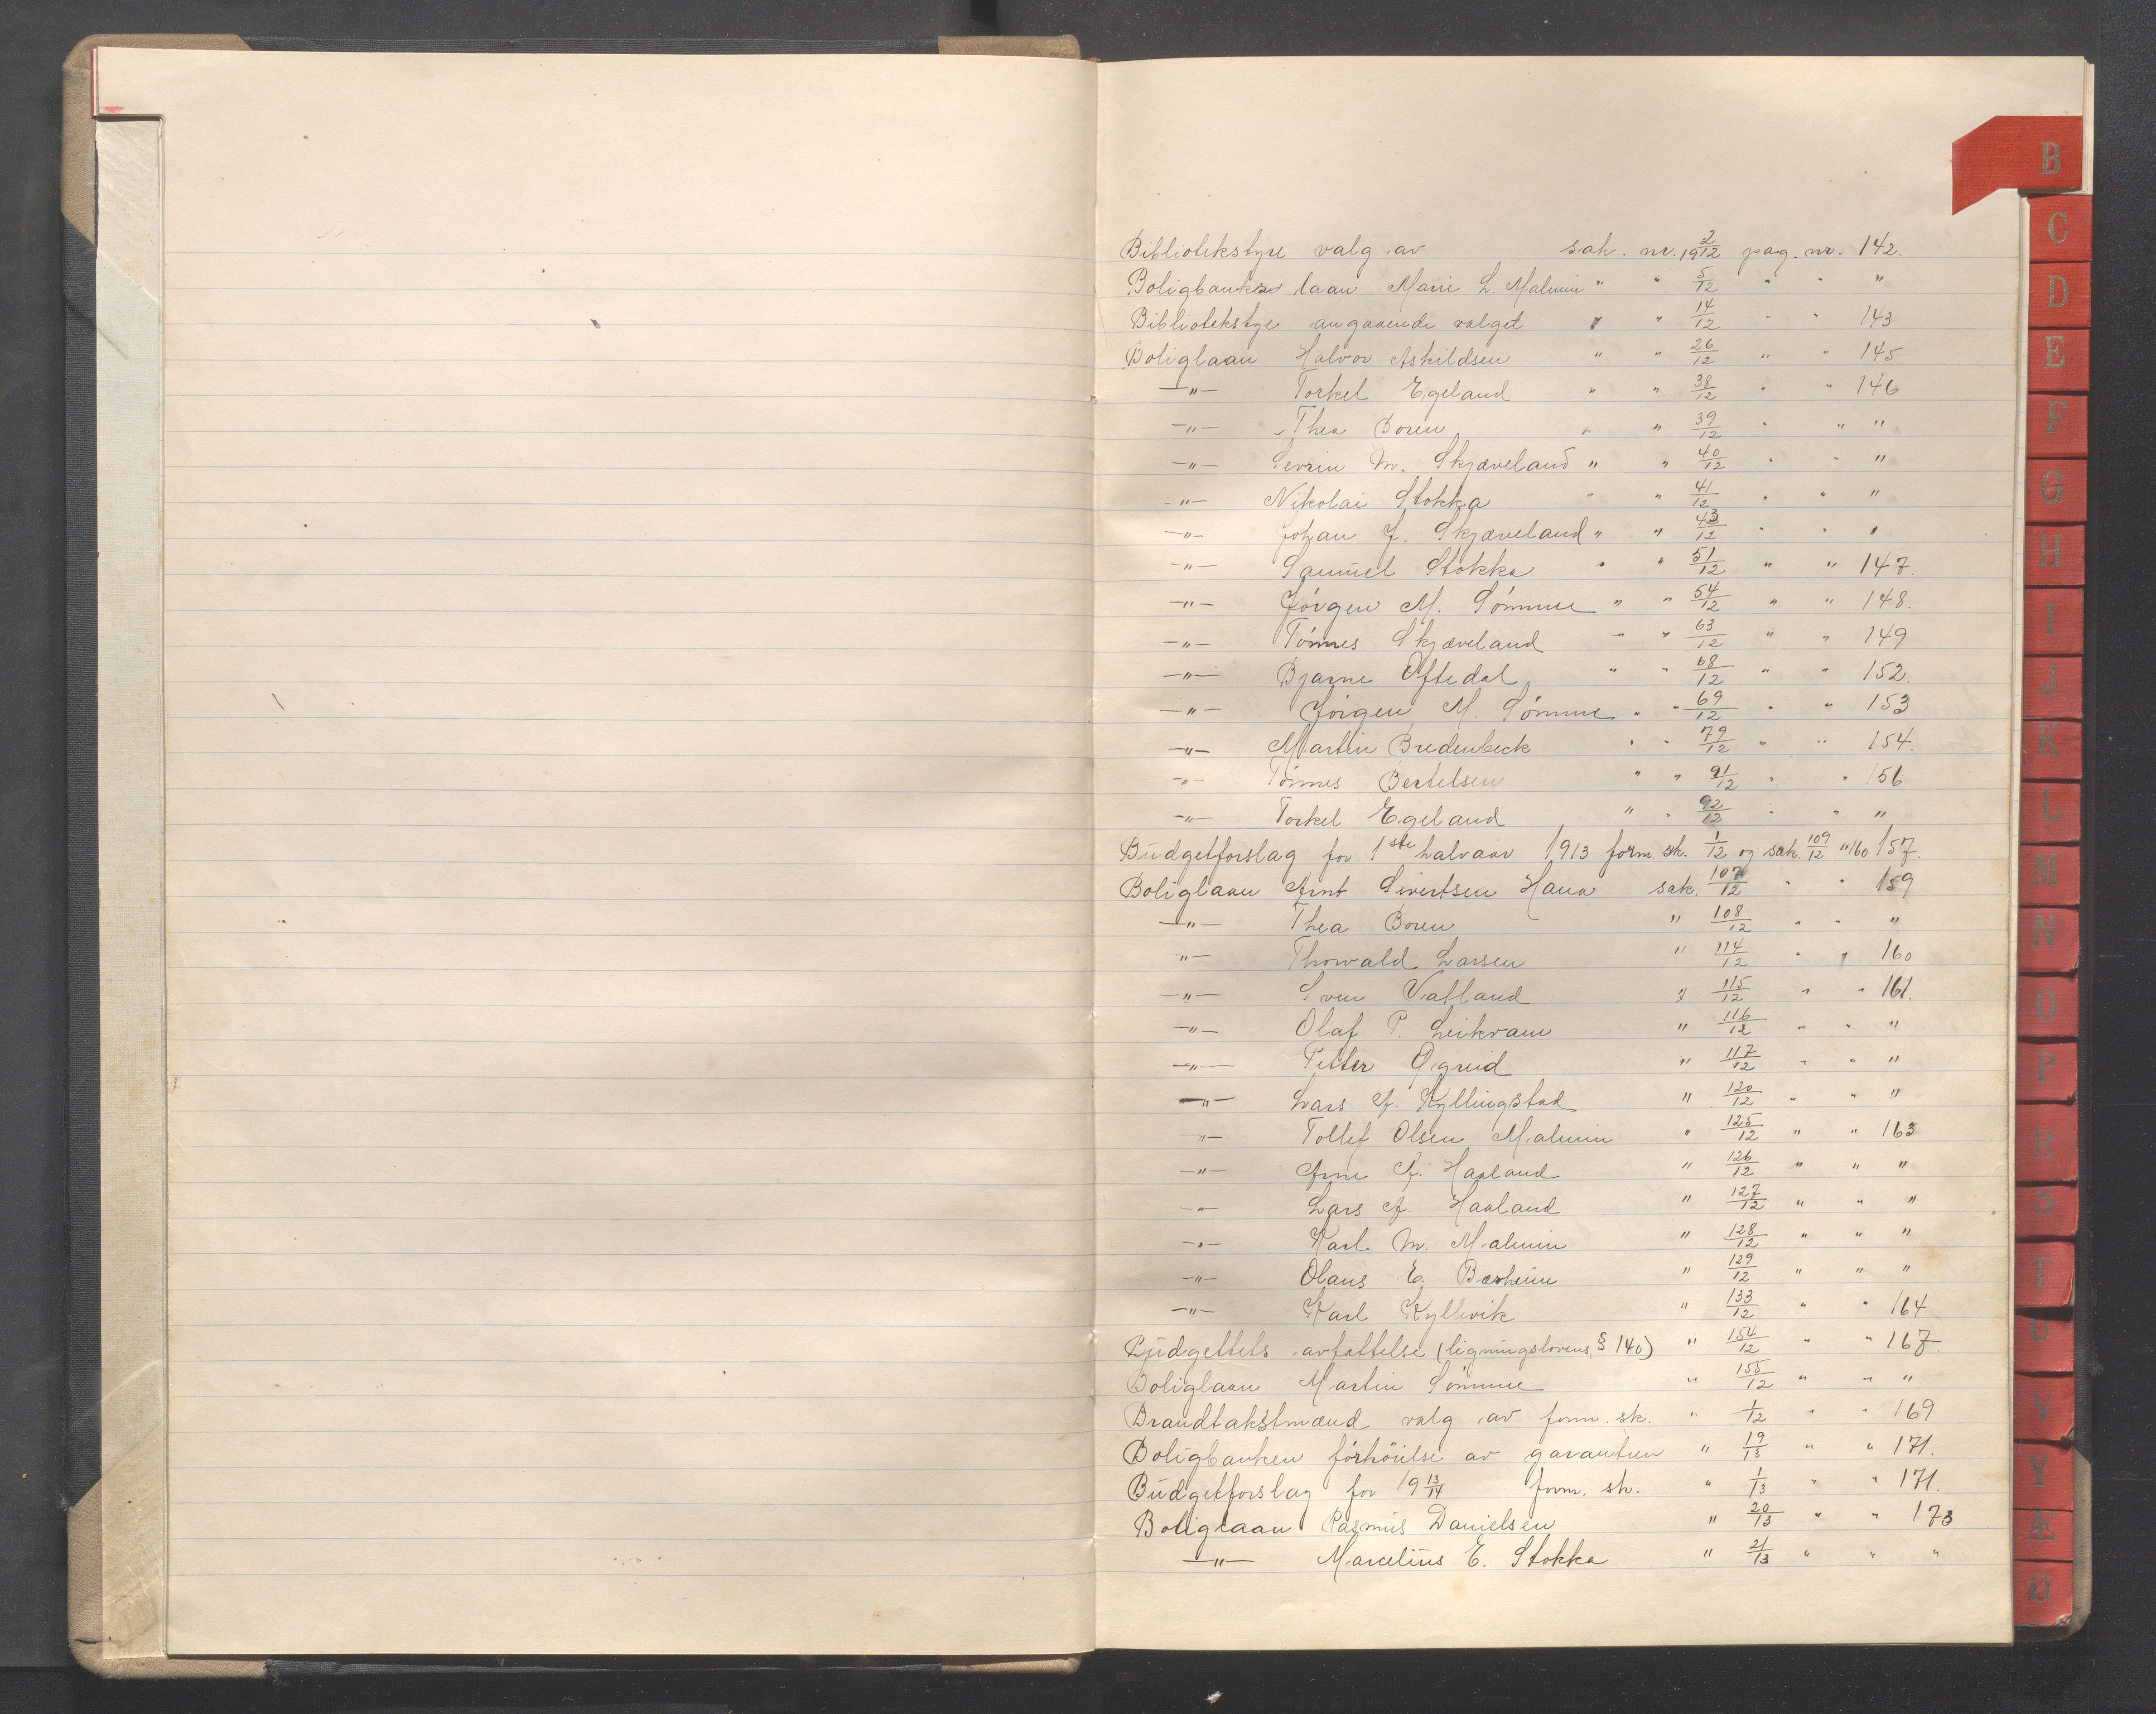 B
C
D
E
F
G
H
I
J
K
L
M
N
O
P
R
S
T
U
V
Y
Æ
Ø
Bibliotekstyre valg av sak. nr. 19 2/12 pag. nr. 142.
Boligbankes laan Marie L. Malmin " " 5/12 " " "
Bibliotekstye angaaende valget " " 14/12 " " 143
Boliglaan Halvor Askildsen " " 26/12 " " 145
—"— Torkel Egeland " " 38/12 " " 146
—"— Thea Boren " " 39/12 " " "
—"— Sevrin M. Skjæveland " " 40/12 " " "
—"— Nikolai Stokka " " 41/12 " " "
—"— Johan J. Skjæveland " " 43/12 " " "
—"— Samuel Stokka " " 51/12 " " 147.
—"— Jörgen M. Sömme " " 54/12 " " 148.
—"— Tönnes Skjæveland " " 63/12 " " 149
—"— Bjarne Oftedal " " 68/12 " " 152.
—"— Jörgen M. Sömme " " 69/12 " " 153
—"— Martin Bredenbeck " " 79/12 " " 154.
—"— Tönnes Bertelsen " " 91/12 " " 156
—"— Torkel Egeland " " 92/12 " " "
Budgetforslag for 1ste halvaar 1913 form. sk. 1/12 og sak. 109/12 " 160 157.
Boliglaan Arnt Sivertsen Hana sak. 107/12 " " 159
—"— Thea Boren " 108/12 " " "
—"— Thorvald Larsen " 114/12 " " 160
—"— Sven Vatland " 115/12 " " 161.
—"— Olaf P. Leikvam " 116/12 " " "
—"— Petter Ogreid " 117/12 " " "
—"— Lars A. Kyllingstad " 120/12 " " "
—"— Tollef Olsen Malmin " 125/12 " " 163
—"— Arne A. Haaland " 126/12 " " "
—"— Lars A. Haaland " 127/12 " " "
—"— Karl M. Malmin " 128/12 " " "
—"— Olaus E. Bærheim " 129/12 " " "
—"— Karl Kyllevik " 133/12 " " 164
Budgettets avfattelse (ligningslovens § 140) " 154/12 " " 167.
Boliglaan Martin Sömme " 155/12 " " "
Brandtakstmænd valg av form. sk. " 1/12 " " 169
Boligbanken forhöielse av garantien " 19/13 " " 171.
Budgetforslag for 19 13/14 form. sk. " 1/13 " " 171.
Boliglaan Rasmus Danielsen " 20/13 " " 173
—"— Marcelius E. Stokka " 21/13 " " "